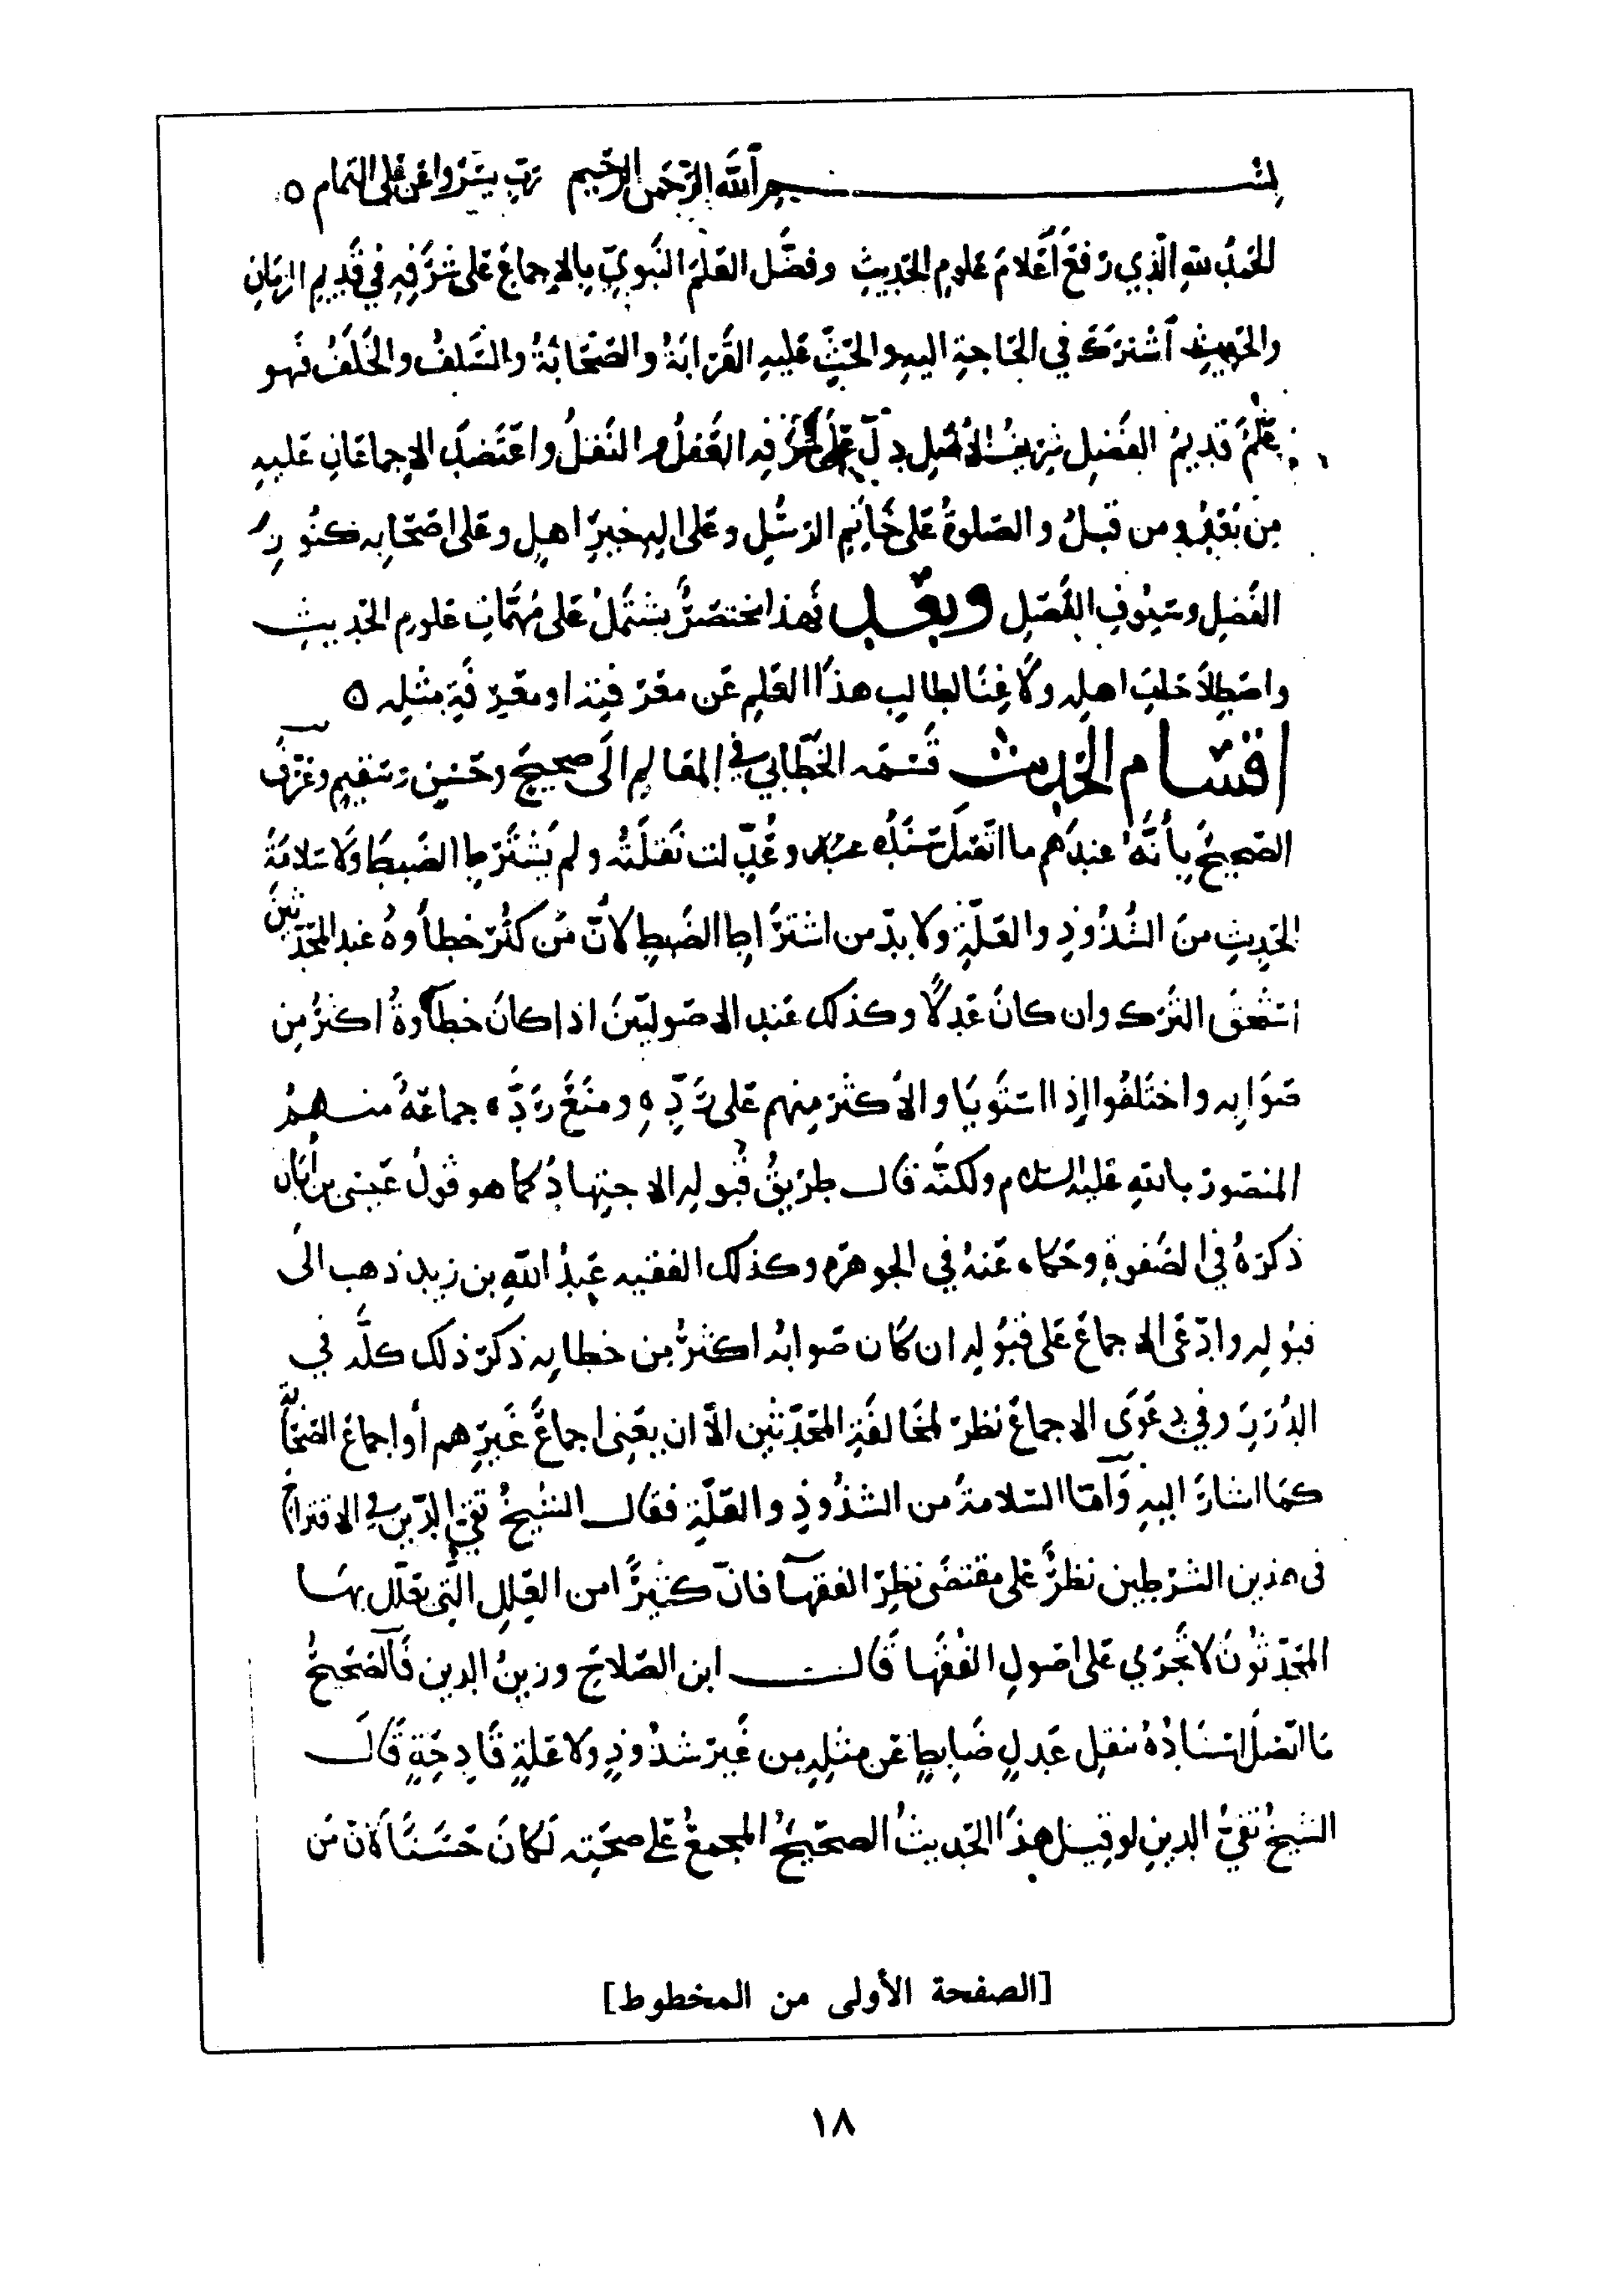 بسم الله الرحمن الرحيم رب يسر واعن على التمام
الحمد لله الذي رفع أعلام علوم الحديث وفضل العلم النبوي بالإجماع على شرفه في قديم الزمان
والحديث اشترك في الحاجة اليه والحث عليه القرابة والصحابة والسلف والخلف فهو
علم قديم الفضل شريف الأصل دل على شرفه العقل والنقل واعتضد الإجماعان عليه
من بعد ومن قبل والصلوة على خاتم الرسل وعلى اله خير اهل وعلى اصحابه كنوز
الفضل وسيوف الفصل وبعد فهذا مختصر يشتمل على مهمات علوم الحديث
واصطلاحات اهله ولا غنا لطالب هذا العلم عن معرفته او معرفة مثله
اقسام الحديث قسمه الخطابي في المعالم الى صحيح وحسن وسقيم وعرف
الصحيح بأنه عندهم ما اتصل سنده وعدلت نقلته ولم يشترط الضبط ولا سلامة
الحديث من الشذوذ والعلة ولا بد من اشتراط الضبط لأن من كثر خطأوه عند المحدثين
استحق الترك وان كان عدلا وكذلك عند الاصوليين اذا كان خطأوه اكثر من
صوابه واختلفوا إذا استويا والأكثر منهم على رده ومنع رده جماعة منهم
المنصور بالله عليه السلام ولكنه قال طريق قبوله الاجتهاد كما هو قول عيسى بن أبان
ذكره في الصفوة وحكاه عنه في الجوهرة وكذلك الفقيه عبد الله بن زيد ذهب الى
قبوله وادعى الاجماع على قبوله ان كان صوابه اكثر من خطابه ذكر ذلك كله في
الدرر وفي دعوى الاجماع نظر لمخالفة المحدثين الا ان يعني اجماع غيرهم أو اجماع الصحابة
كما اشار اليه وأما السلامة من الشذوذ والعلة فقال الشيخ تقي الدين في الاقتراح
في هذين الشرطين نظر على مقتضى نظر الفقهآ فان كثيرا من العلل التي يعلل بها
المحدثون لا تجري على اصول الفقها قال ابن الصلاح وزين الدين فالصحيح
ما اتصل اسناده بنقل عدل ضابط عن مثله من غير شذوذ ولا علة قادحة قال
الشيخ تقي الدين لو قيل هذا الحديث الصحيح المجمع على صحته لكان حسنا لأن من
[الصفحة الأولى من المخطوط]
١٨